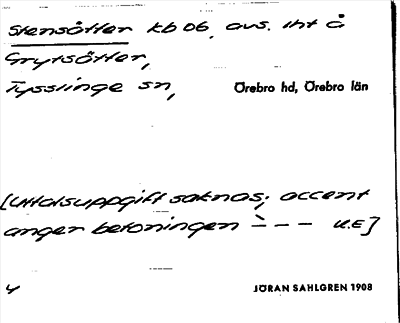 Stensätter kb 06, avs. iht å
Grytsätter,
Tysslinge sn,
Örebro hd, Örebro län
[Uttalsuppgift saknas; accent
anger betoningen ̀– – – U.E]
4
JÖRAN SAHLGREN 1908